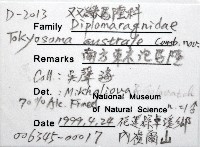 D-2013 双線馬陸科
Family Diplomaragnidae
Tokyosoma australe Comb. nov.
Remarks 南方東京泡馬陸
Coll: 吳聲海
Det: Mikhaljova
70% Alc. Fixed National Museum
of Natural Science
Date 1999.4.24 花蓮縣卓溪鄉
006345-00017 內嶺爾山